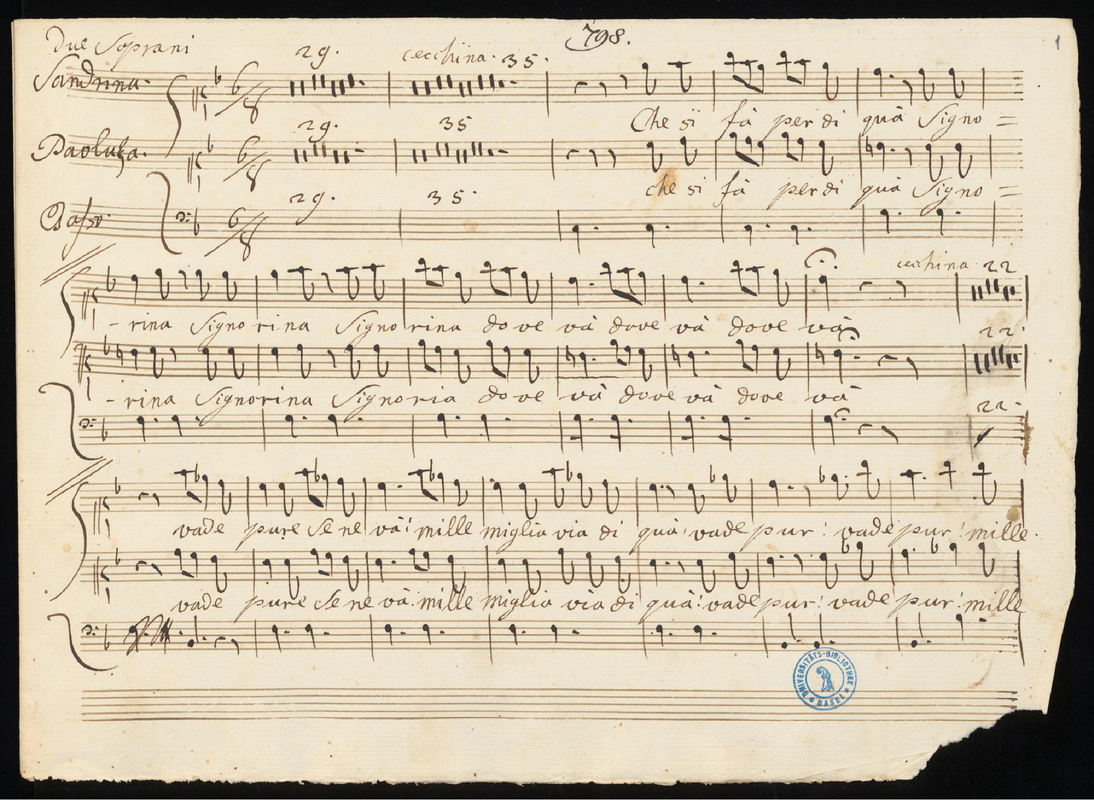 798.
1
Due Soprani
29. cecchina. 35.
Sandrina.
6/8
Che si fà per di quà Signo =
29. 35
Paoluza.
6/8
che si fà per di quà Signo =
29. 35
Basso.
6/8
cecchina 22
- rina Signo rina Signo rina dove và dove và dove và
22.
- rina Signorina Signoria dove và dove và dove và
22.
vade pure se ne và! mille miglia via di quà! vade pur! vade pur! mille
vade pure se ne và! mille miglia via di quà! vade pur! vade pur! mille
UNIVERSITÄTS-BIBLIOTHEK BASEL